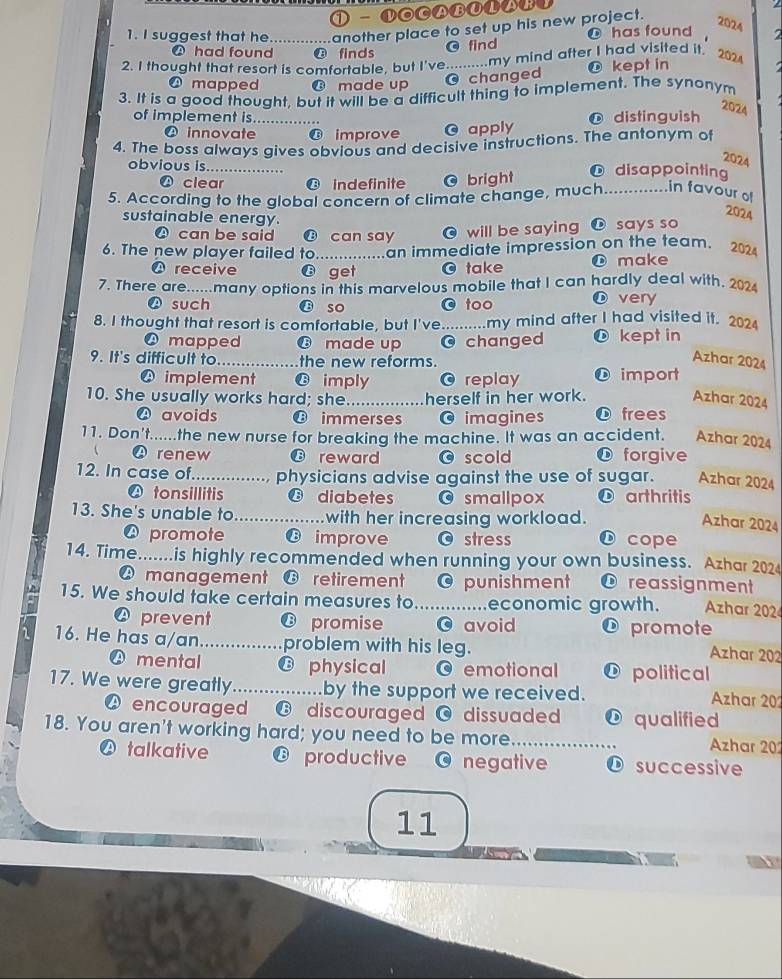 ① - VOCABULARY
1. I suggest that he.............another place to set up his new project. 2024
Ⓐ had found Ⓑ finds Ⓒ find Ⓓ has found
2. I thought that resort is comfortable, but I've..........my mind after I had visited it. 2024
Ⓐ mapped Ⓑ made up Ⓒ changed Ⓓ kept in
3. It is a good thought, but it will be a difficult thing to implement. The synonym
of implement is............... 2024
Ⓐ innovate Ⓑ improve Ⓒ apply Ⓓ distinguish
4. The boss always gives obvious and decisive instructions. The antonym of
obvious is................. 2024
Ⓐ clear Ⓑ indefinite Ⓒ bright Ⓓ disappointing
5. According to the global concern of climate change, much.............in favour of
sustainable energy. 2024
Ⓐ can be said Ⓑ can say Ⓒ will be saying Ⓓ says so
6. The new player failed to...............an immediate impression on the team. 2024
Ⓐ receive Ⓑ get Ⓒ take Ⓓ make
7. There are......many options in this marvelous mobile that I can hardly deal with. 2024
Ⓐ such Ⓑ so Ⓒ too Ⓓ very
8. I thought that resort is comfortable, but I've..........my mind after I had visited it. 2024
Ⓐ mapped Ⓑ made up Ⓒ changed Ⓓ kept in
9. It's difficult to..................the new reforms. Azhar 2024
Ⓐ implement Ⓑ imply Ⓒ replay Ⓓ import
10. She usually works hard; she.................herself in her work. Azhar 2024
Ⓐ avoids Ⓑ immerses Ⓒ imagines Ⓓ frees
11. Don't......the new nurse for breaking the machine. It was an accident. Azhar 2024
Ⓐ renew Ⓑ reward Ⓒ scold Ⓓ forgive
12. In case of................, physicians advise against the use of sugar. Azhar 2024
Ⓐ tonsillitis Ⓑ diabetes Ⓒ smallpox Ⓓ arthritis
13. She's unable to...................with her increasing workload. Azhar 2024
Ⓐ promote Ⓑ improve Ⓒ stress Ⓓ cope
14. Time.......is highly recommended when running your own business. Azhar 2024
Ⓐ management Ⓑ retirement Ⓒ punishment Ⓓ reassignment
15. We should take certain measures to...............economic growth. Azhar 202
Ⓐ prevent Ⓑ promise Ⓒ avoid Ⓓ promote
16. He has a/an.................problem with his leg. Azhar 202
Ⓐ mental Ⓑ physical Ⓒ emotional Ⓓ political
17. We were greatly...................by the support we received. Azhar 202
Ⓐ encouraged Ⓑ discouraged Ⓒ dissuaded Ⓓ qualified
18. You aren't working hard; you need to be more..................... Azhar 202
Ⓐ talkative Ⓑ productive Ⓒ negative Ⓓ successive
11